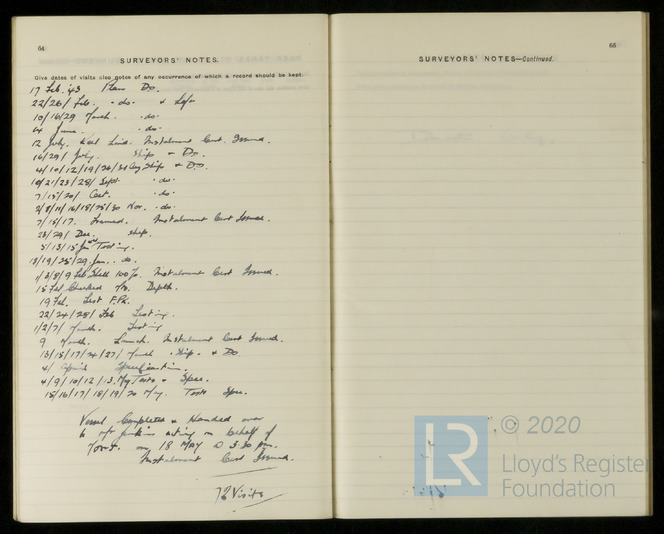 64
SURVEYORS' NOTES.
Give dates of visits also notes of any occurrence of which a record should be kept.
17 Feb. 43 Plans Do.
22/26/ Feb. - do - & Loft
10/16/29 March. - do -
4 June. - do -
12 July. Keel Laid. Instalment Cert. Issued.
16/29/ July. Ship & Do.
4/10/12/19/26/30 Aug Ship & Do.
10/21/23/28/ Sept - do -
7/15/20/ Oct. - do -
2/8/11/16/18/25/30 Nov. - do -
7/15/17. Framed. Instalment Cert Issued.
23/29/ Dec. Ship.
5/13/15 Jan Testing.
18/19/25/29 Jan. - do.
1/3/8/9 Feb Shell 100%. Instalment Cert Issued.
15 Feb Checked Depth.
19 Feb. Test F.Pk.
22/24/28/ Feb Testing.
1/2/7/ March. Testing
9 March. Launch. Instalment Cert Issued.
13/15/17/24/27/ March - Ship. & Do
4/ April Specification.
4/9/10/12/13. May Tests & Spec.
15/16/17/18/19/20 May. Tests Spec.
Vessel Completed & Handed over
to Mr acting on behalf of
on 18 MAY @ 3.30 pm.
Instalment Cert Issued.
72 Visits
65
SURVEYORS' NOTES—Continued.
LR
© 2020
Lloyd's Register
Foundation